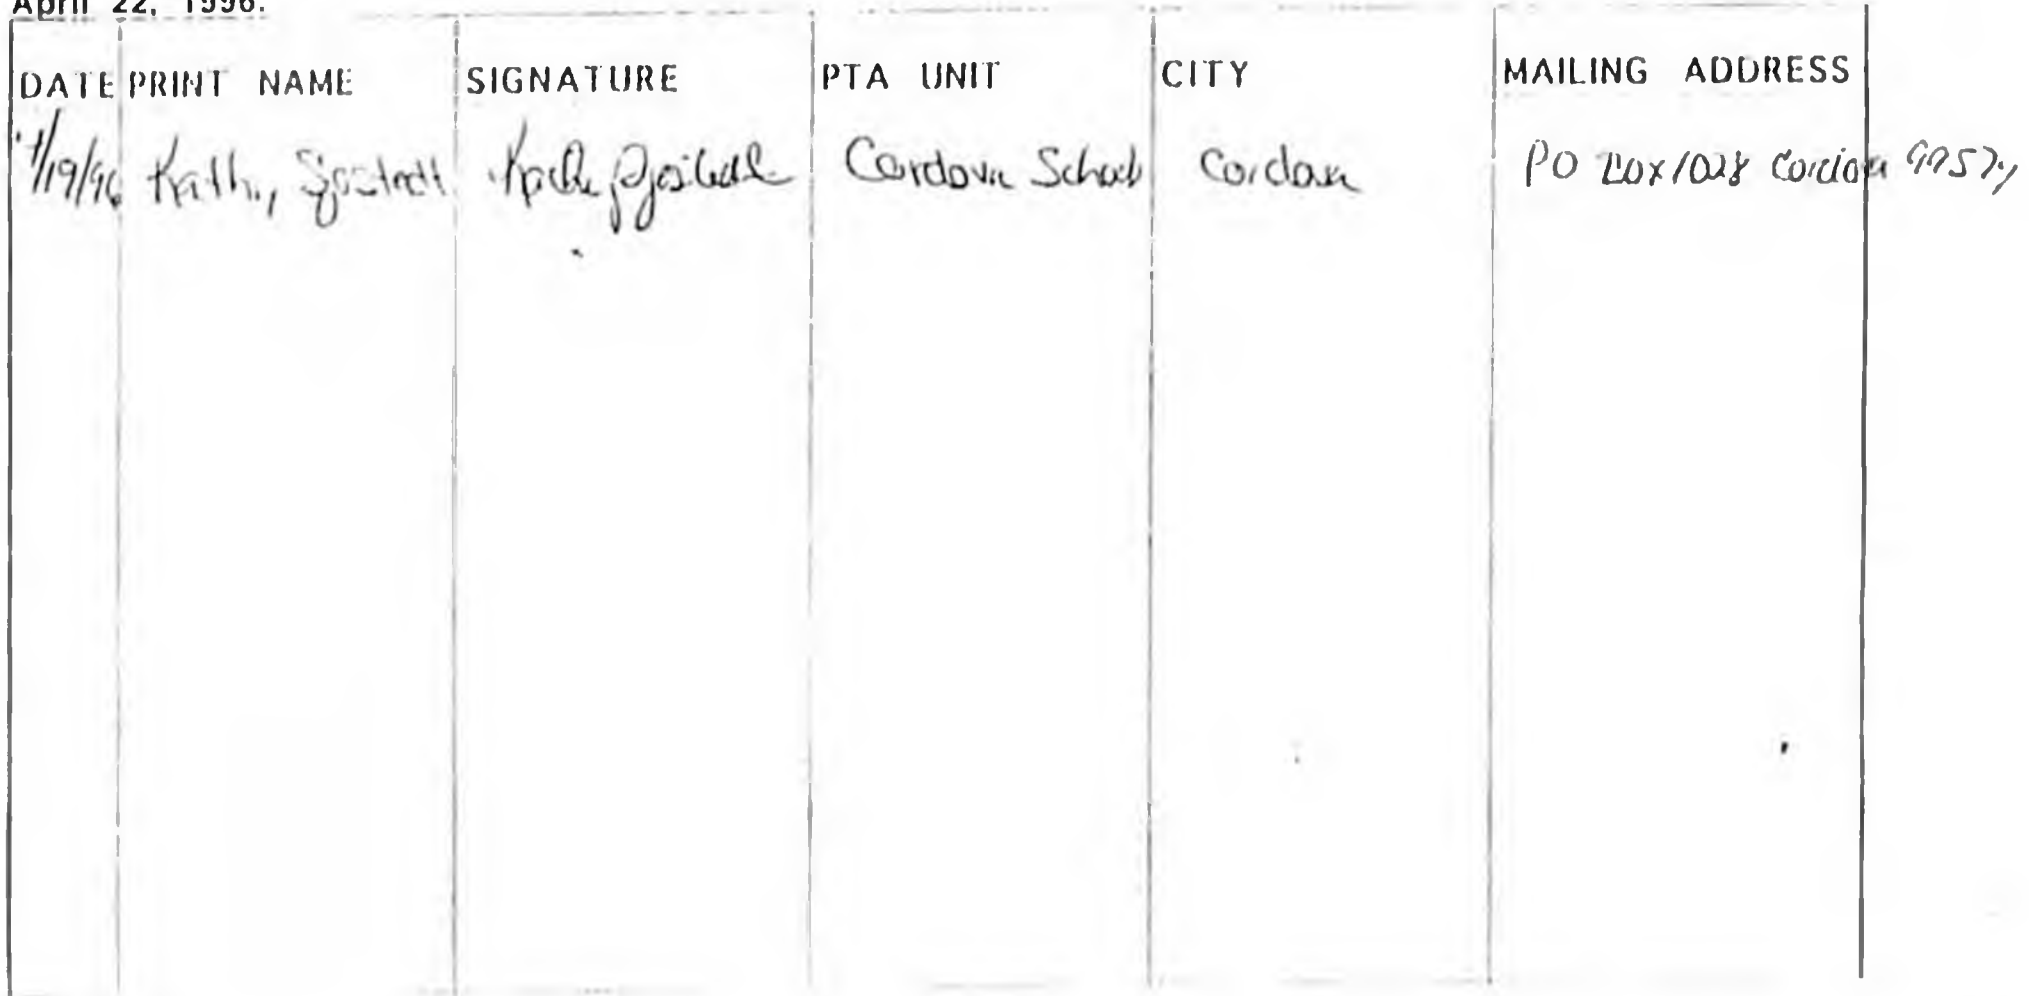 April 22, 1996.
DATE PRINT NAME SIGNATURE PTA UNIT CITY MAILING ADDRESS
4/19/96 Kathy Sjostedt Kathy Sjostedt Cordova Schools Cordova PO Box 1028 Cordova 99574